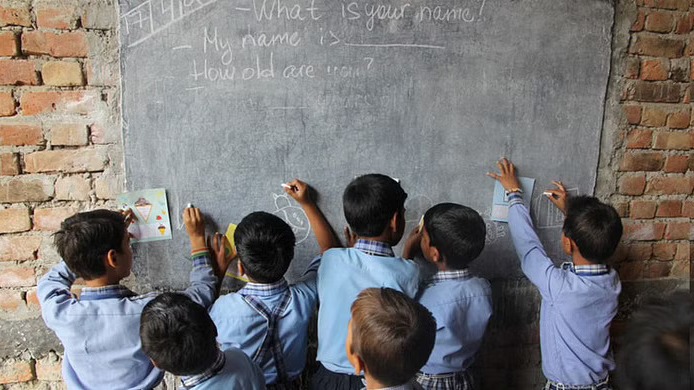 -What is your name?
- My name is ________
- How old are you?